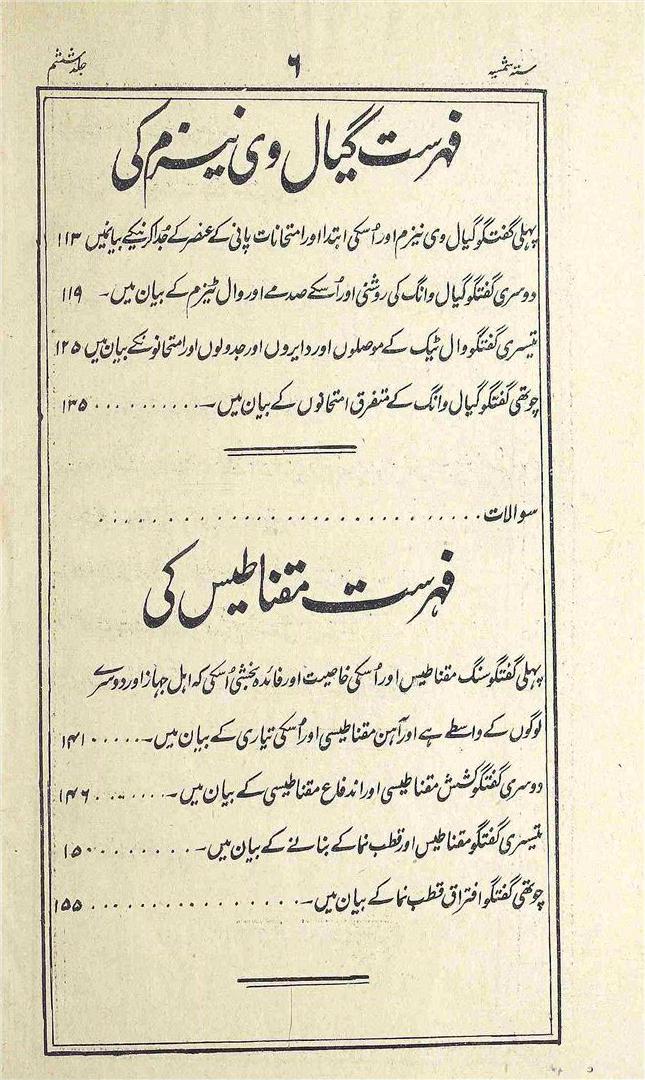 ستہ شمسیہ ۶ جلد ششم
فہرست گیال وی نیزم کی
پہلی گفتگو گیال وی نیزم اور اُسکی ابتدا اور امتحانات پانی کے عنصر کے جُدا کرنیکے بیانمیں ۱۱۳
دوسری گفتگو گیال وانگ کی روشنی اور اُسکے صدمے اور وال ٹیزم کے بیان میں۔ ۱۱۹
تیسری گفتگو وال ٹیک کے موصلوں اور دایروں اور جدولوں اور امتحانونکے بیان میں ۱۲۵
چوتھی گفتگو گیال وانگ کے متفرق امتحانوں کے بیان میں۔ .......... ۱۳۵
سوالات ..............................
فہرست مقناطیس کی
پہلی گفتگو سنگ مقناطیس اور اُسکی خاصیت اور فائدہ بخشی اُسکی کہ اہل جہاز اور دوسرے
لوگوں کے واسطے ہے اور آہن مقناطیسی اور اُسکی تیاری کے بیان میں۔ ..... ۱۴۱
دوسری گفتگو کشش مقناطیسی اور اندفاع مقناطیسی کے بیان میں۔ ....... ۱۴۶
تیسری گفتگو مقناطیس اور قطب نما کے بنانے کے بیان میں۔ ......... ۱۵۰
چوتھی گفتگو افتراق قطب نما کے بیان میں۔ ................ ۱۵۵